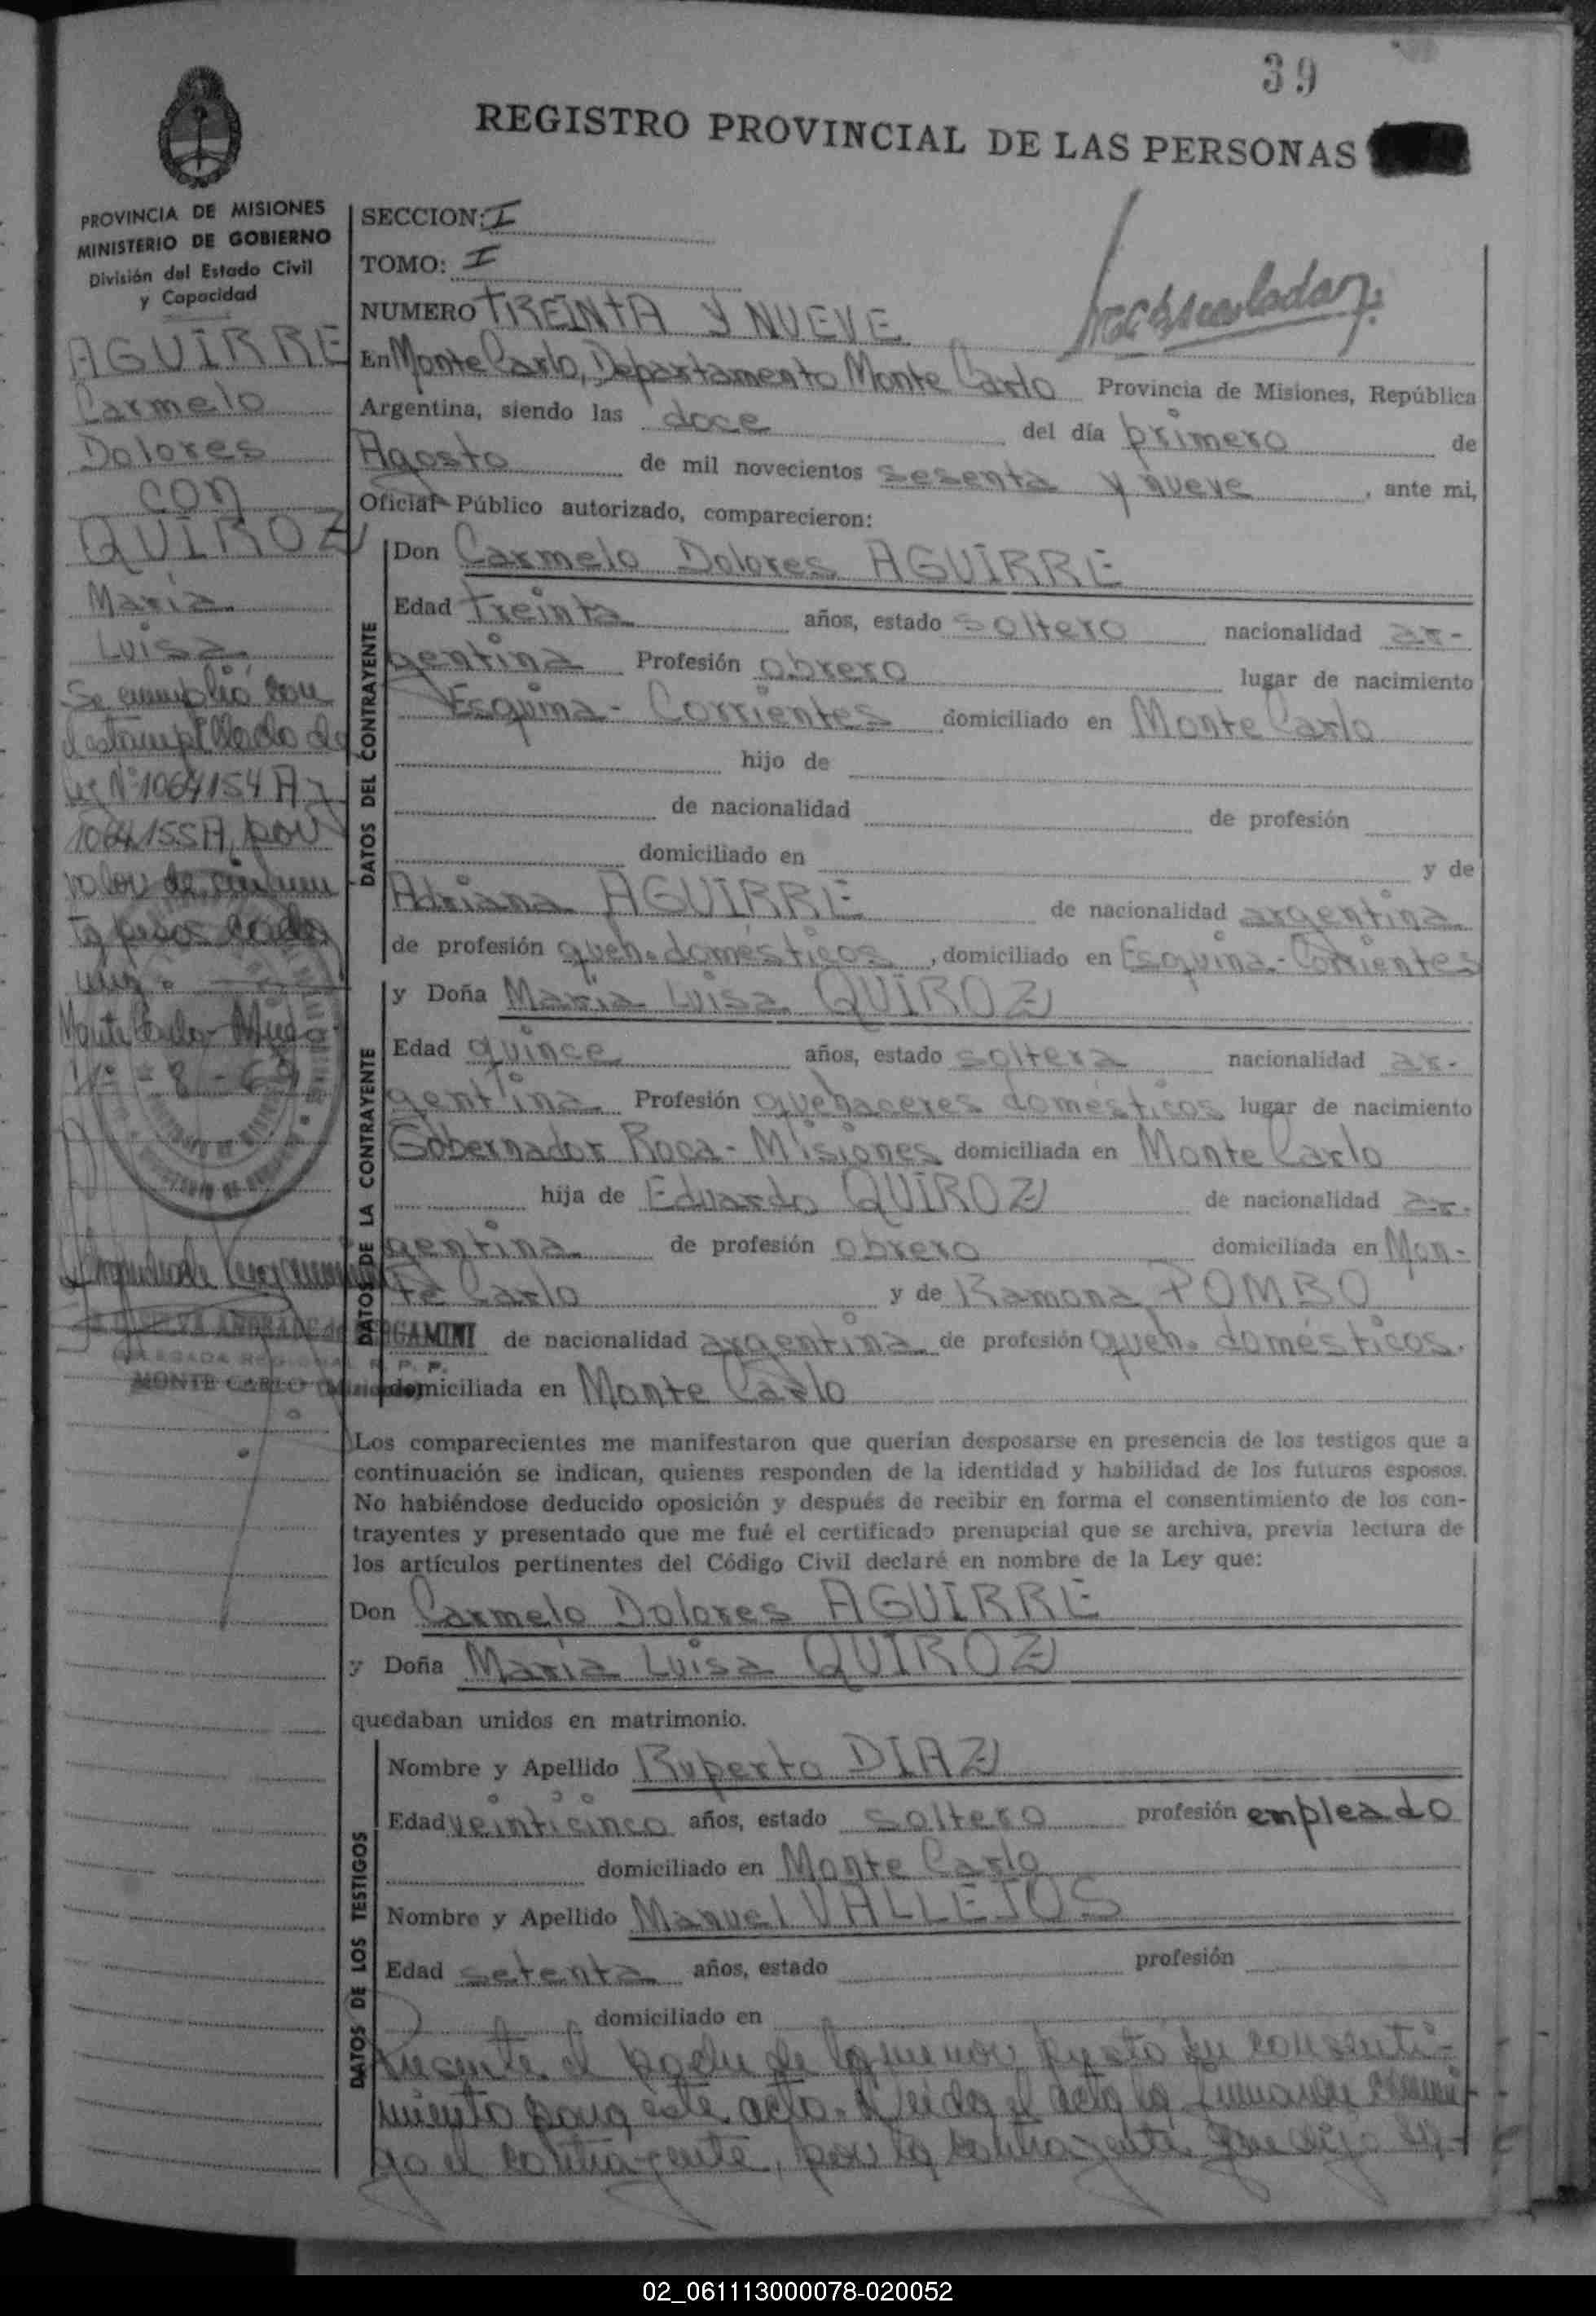 39
REGISTRO PROVINCIAL DE LAS PERSONAS
PROVINCIA DE MISIONES
MINISTERIO DE GOBIERNO
División del Estado Civil
y Capacidad
AGUIRRE
Carmelo
Dolores
con
QUIROZ
María
Luisa
Se cumplió con
el estampillado de
ley Nº 1064154 A y
1064155A, por
valor de cincuen
ta pesos cada
uno.
Monte Carlo
1º - 8 - 69
MONTE CARLO (Misiones)
SECCION: I
TOMO: I
NUMERO TREINTA Y NUEVE
En Monte Carlo, Departamento Monte Carlo Provincia de Misiones, República
Argentina, siendo las doce del día primero de
Agosto de mil novecientos sesenta y nueve, ante mi,
Oficial Público autorizado, comparecieron:
DATOS DEL CONTRAYENTE
Don Carmelo Dolores AGUIRRE
Edad treinta años, estado soltero nacionalidad ar-
gentina Profesión obrero lugar de nacimiento
Esquina - Corrientes domiciliado en Monte Carlo
hijo de
de nacionalidad de profesión
domiciliado en y de
Adriana AGUIRRE de nacionalidad argentina
de profesión queh. domésticos, domiciliado en Esquina - Corrientes
DATOS DE LA CONTRAYENTE
y Doña María Luisa QUIROZ
Edad quince años, estado soltera nacionalidad ar-
gentina Profesión quehaceres domésticos lugar de nacimiento
Gobernador Roca - Misiones domiciliada en Monte Carlo
hija de Eduardo QUIROZ de nacionalidad ar-
gentina de profesión obrero domiciliada en Mon-
te Carlo y de Ramona POMBO
de nacionalidad argentina de profesión queh. domésticos.
domiciliada en Monte Carlo
Los comparecientes me manifestaron que querían desposarse en presencia de los testigos que a
continuación se indican, quienes responden de la identidad y habilidad de los futuros esposos.
No habiéndose deducido oposición y después de recibir en forma el consentimiento de los con-
trayentes y presentado que me fué el certificado prenupcial que se archiva, previa lectura de
los artículos pertinentes del Código Civil declaré en nombre de la Ley que:
Don Carmelo Dolores AGUIRRE
y Doña María Luisa QUIROZ
quedaban unidos en matrimonio.
DATOS DE LOS TESTIGOS
Nombre y Apellido Ruperto DIAZ
Edad veinticinco años, estado soltero profesión empleado
domiciliado en Monte Carlo
Nombre y Apellido Manuel VALLEJOS
Edad setenta años, estado profesión
domiciliado en
Presente el padre de la menor presta su consenti-
miento para este acto. Leída el acta la
go el contrayente, por la contrayente que dijo
02_061113000078-020052